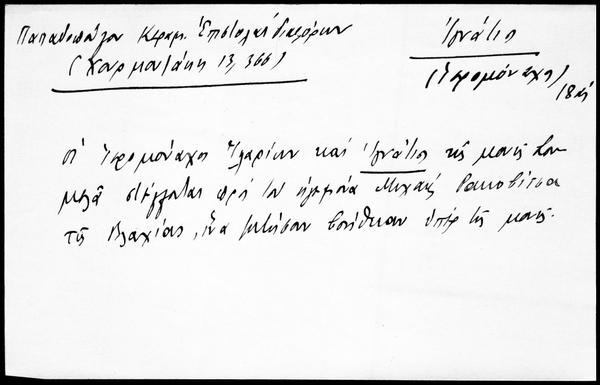 Παπαδοπούλου Κεραμ. Ἐπιστολαὶ διαφόρων
(Χαρμουζάκη 13, 366)
Ἰγνάτιος
(Ἱερομόναχος)
18
οἱ Ἱερομόναχοι Ἱλαρίων καὶ Ἰγνάτιος τῆς μονῆς Σου-
μελᾶ στέλλονται πρὸς τὸν ἡγεμόνα Μιχαὴλ Ρακοβίτσα
τῆς Βλαχίας, ἵνα ζητήσουν βοήθειαν ὑπὲρ τῆς μονῆς.